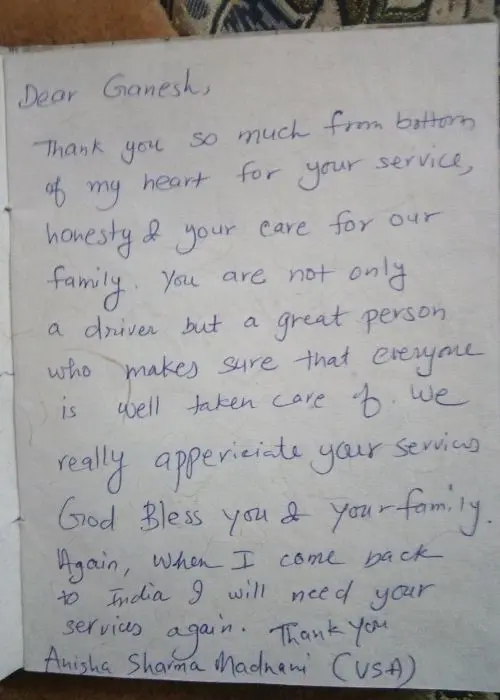 Dear Ganesh,
Thank you so much from bottom
of my heart for your service,
honesty & your care for our
family. You are not only
a driver but a great person
who makes sure that everyone
is well taken care of. We
really appericiate your services
God Bless you & your family.
Again, when I come back
to India I will need your
services again. Thank you
Anisha Sharma Madnani (USA)